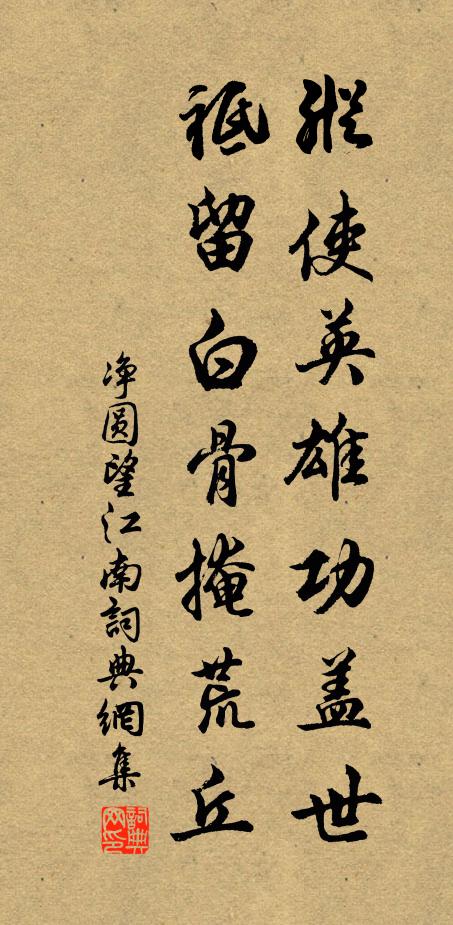 縱使英雄功盖世
祗留白骨掩荒丘
净圆望江南詞典網集
詞典网印